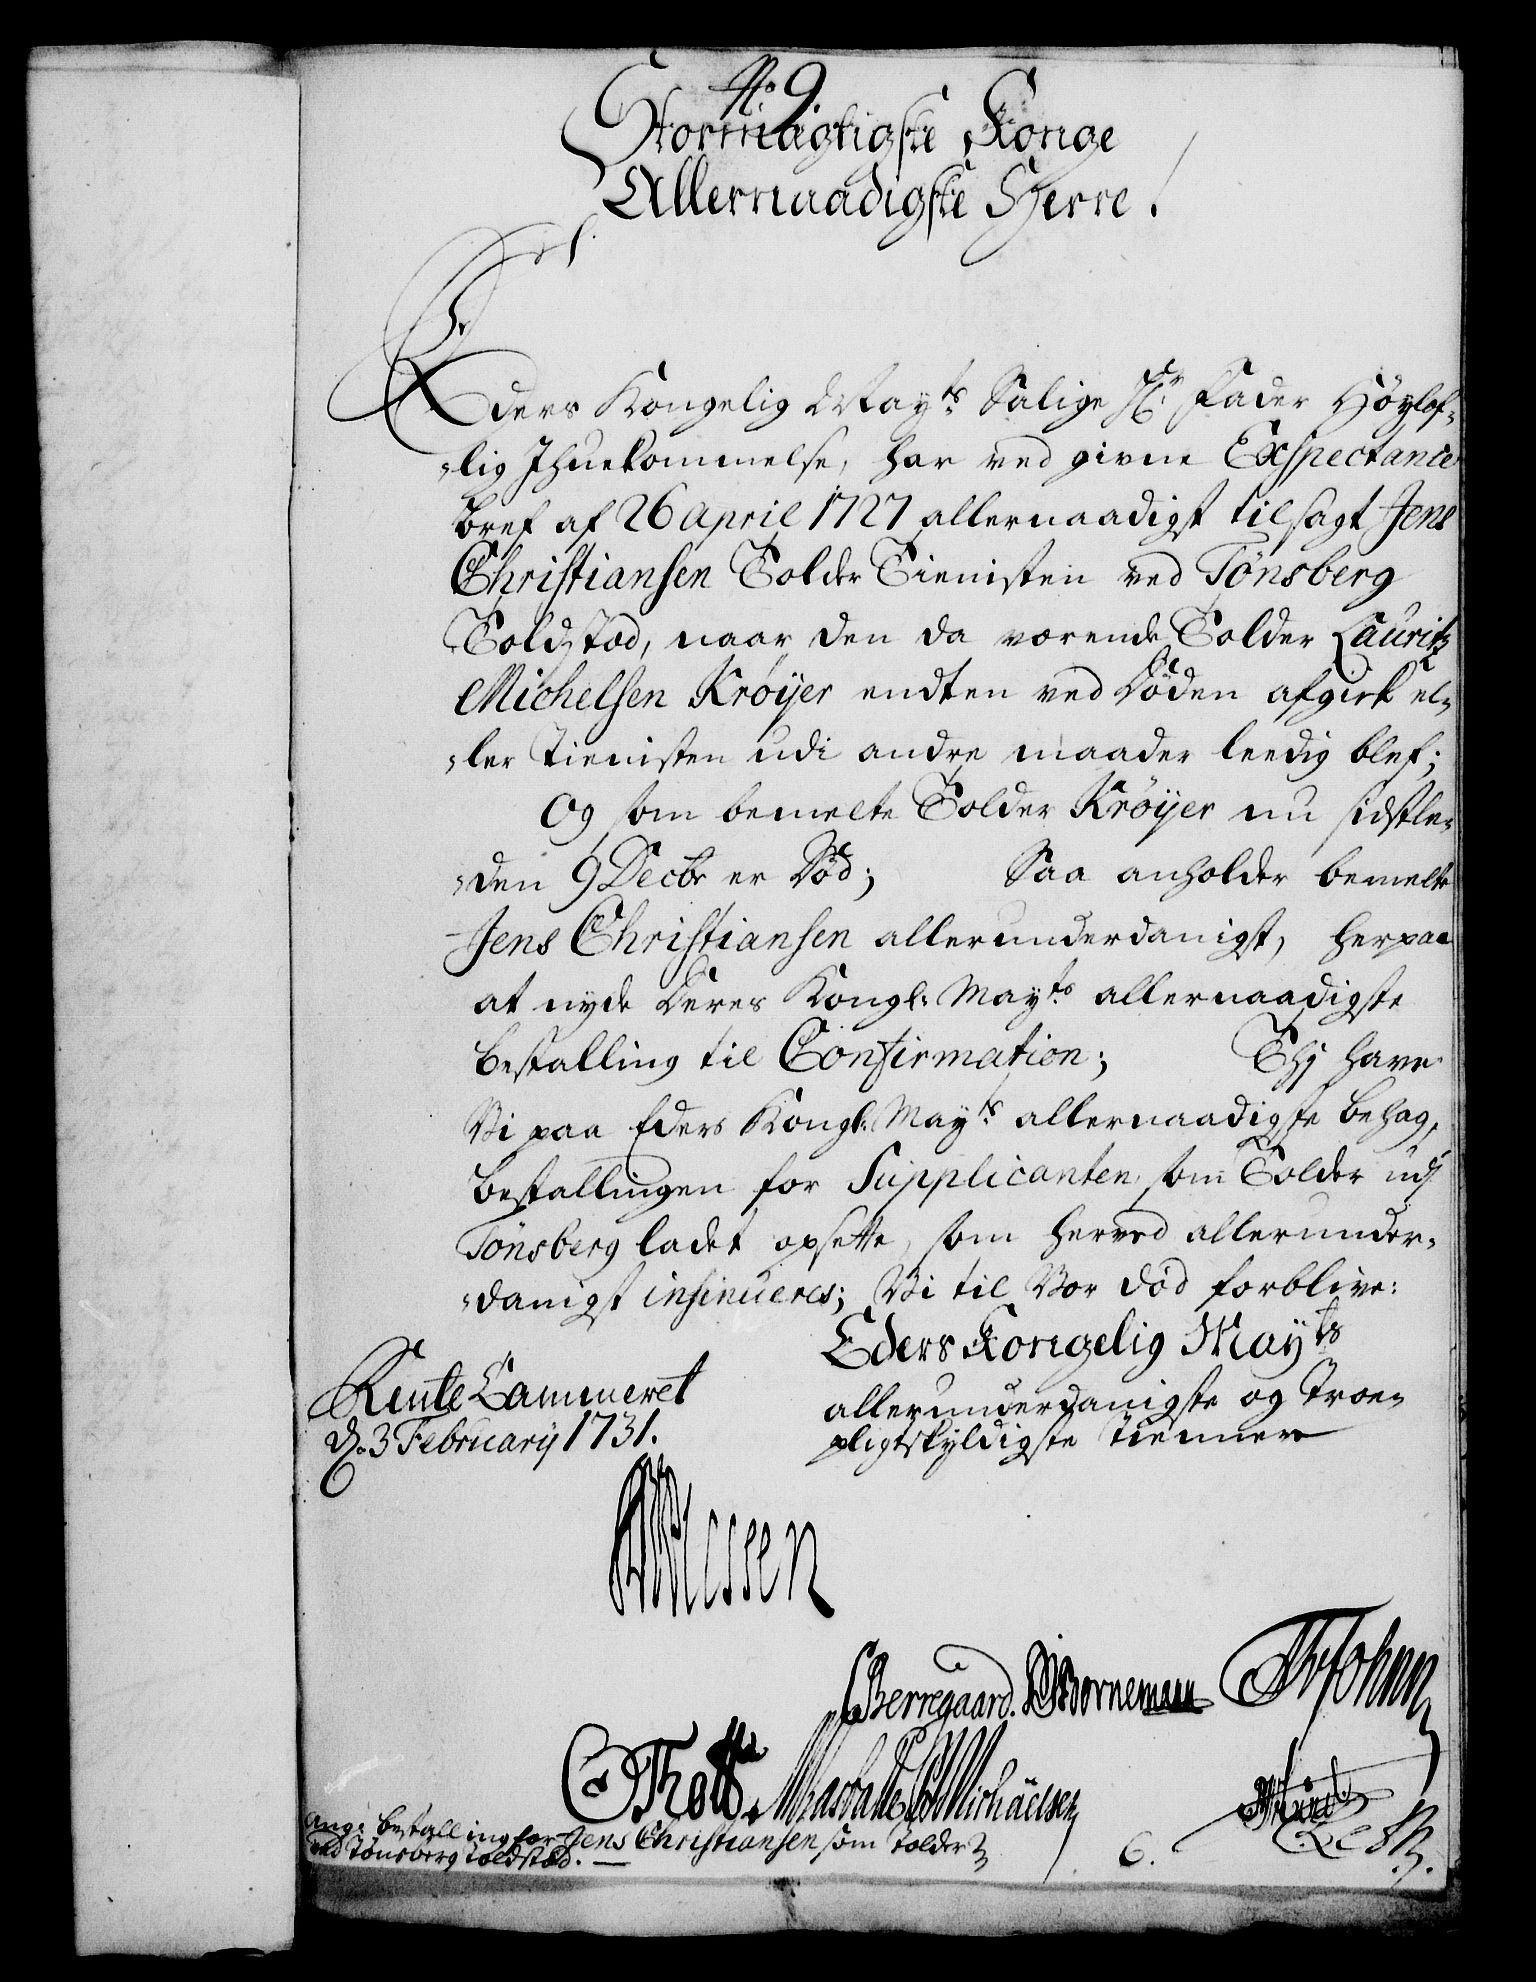 No. 9.
Stormægtigste Konge
Allernaadigste Herre!
Eders Kongelig Mayts. Salige Hr. Fader Höylof-
-lig Ihuekommelse, har ved givne Exspectance
bref af 26 April 1727 allernaadigst tilsagt Jens
Christiansen Tolder Tienisten ved Tönsberg
Toldstæd, naar den da værende Tolder Lauritz
Michelsen Kröÿer endten ved Döden afgick el-
-ler Tienisten udi andre maader leedig blef;
Og som bemelte Tolder Kröÿer nu sidstle-
-den 9 Decbr er Död; Saa anholder bemelte
Jens Christiansen allerunderdanigst, herpaa
at nyde Deres Kongl. Mayts. allernaadigste
bestalling til Confirmation; Thj have
Vi paa Eders Kongl. Mayts. allernaadigste behag,
bestallingen for Supplicanten som Tolder udj
Tönsberg ladet opsette, som herved allerunder-
-danigst insinueres; Vi til Vor död forblive:
Eders Kongelig Mayts
allerunderdanigste og Troe-
pligtskyldigste Tienner
Rente Cammeret
d. 3 Februarij 1731.
Berregaard. Bornemann
Thott.
ang: bestalling for Jens Christiansen som Tolder
ved Tönsberg Toldstæd.
6.